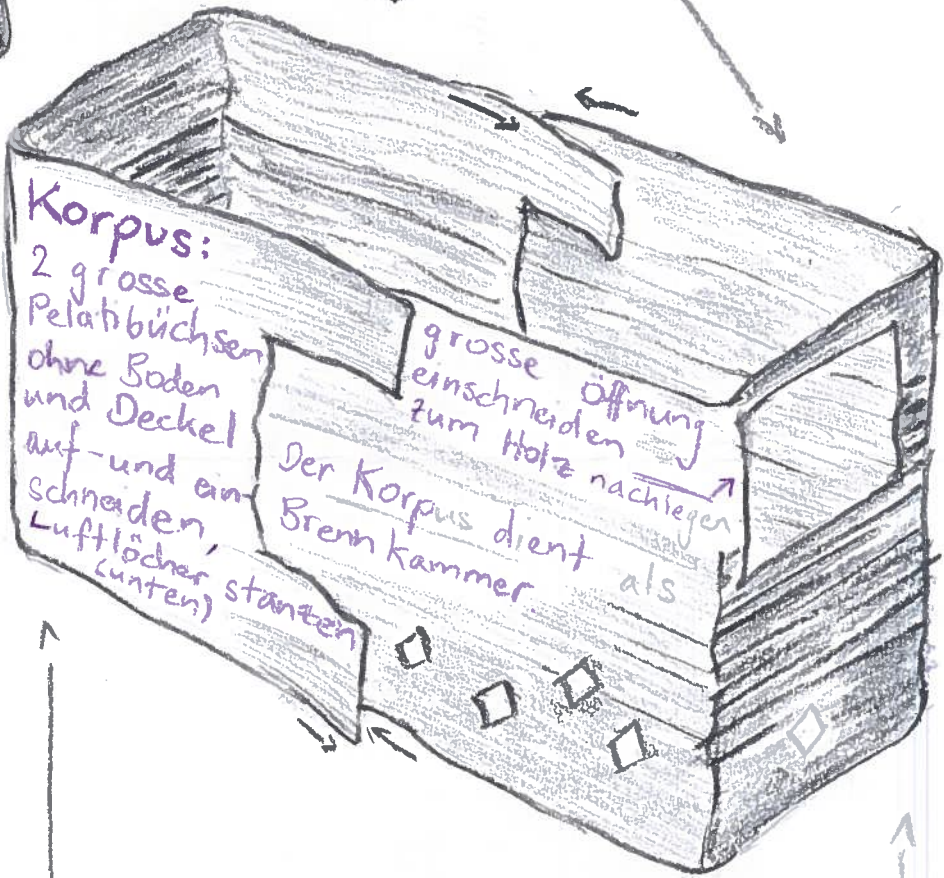 Korpus:
2 grosse
Pelatibüchsen
ohne Boden
und Deckel
auf- und ein-
schneiden,
Luftlöcher stanzen
(unten)
grosse Öffnung
einschneiden
zum Holz nachlegen
Der Korpus dient als
Brennkammer.